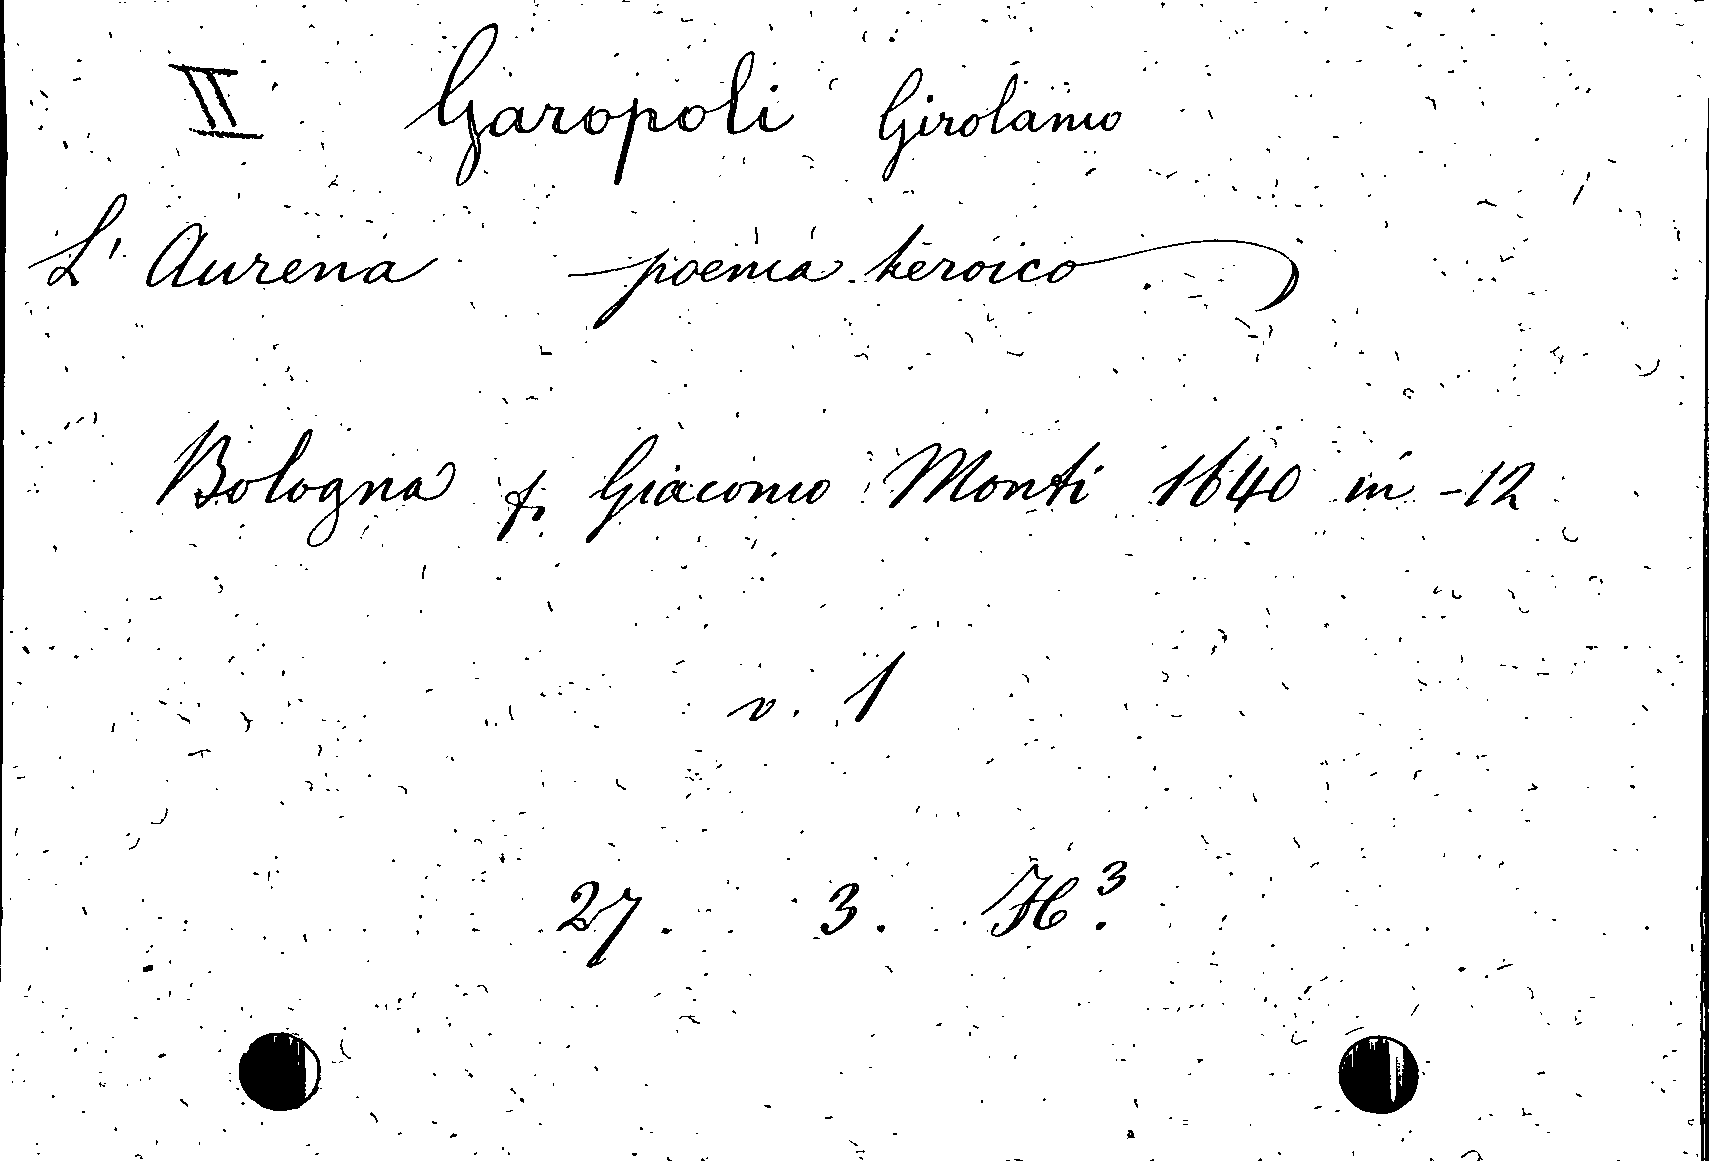 II Garopoli Girolamo
L' Aurena poema heroico
Bologna f. Giacomo Monti 1640 in-12
v. 1
27. 3. H³.